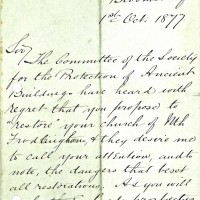 1st Oct. 1877
Sir
The Committee of the Society
for the Protection of Ancient
Buildings have heard with
regret that you propose to
"restore" your church of
Frodingham & they desire me
to call your attention, and to
note, the dangers that beset
all restorations. As you will